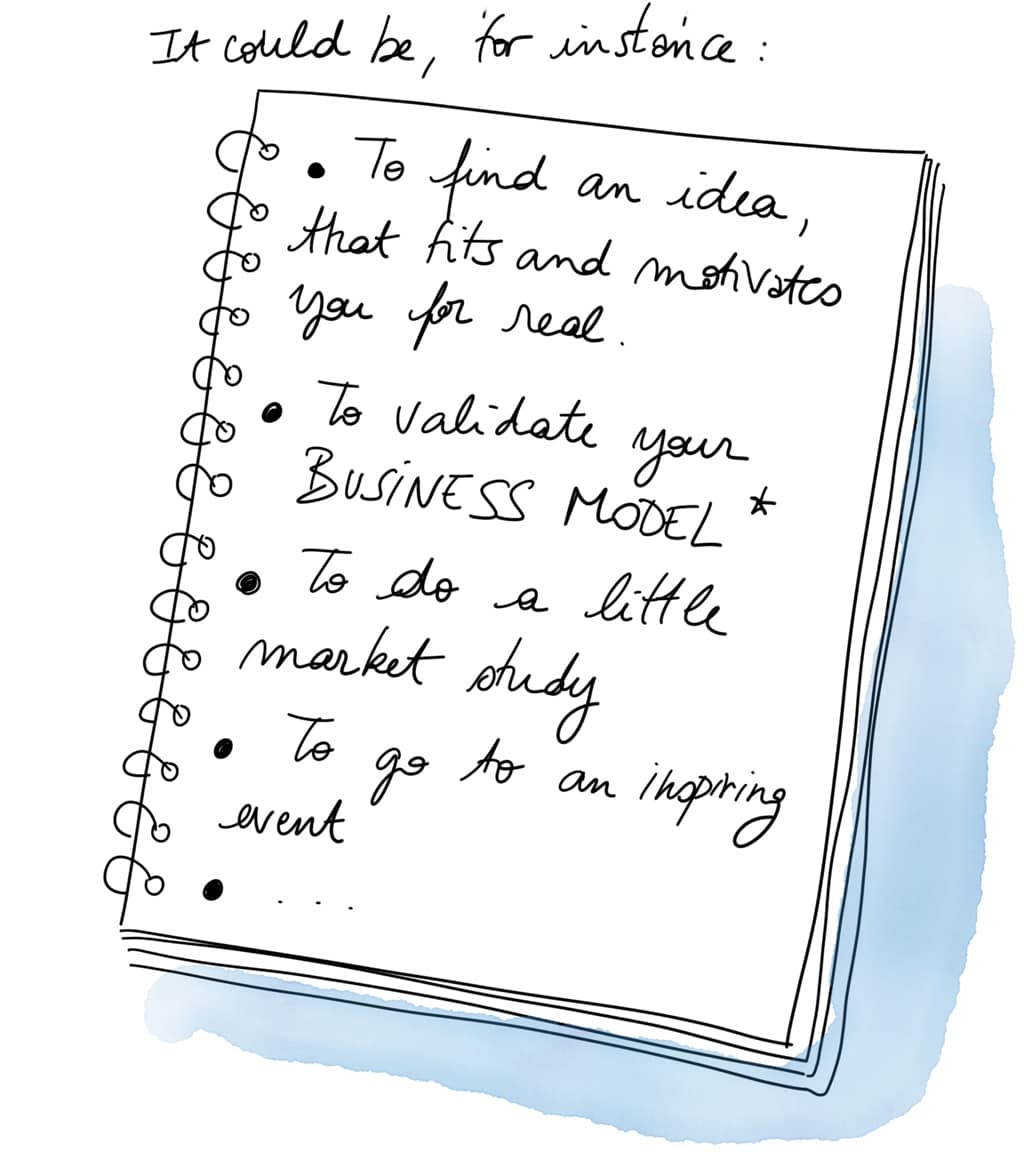 It could be, for instance :
• To find an idea,
that fits and motivates
you for real.
• To validate your
BUSINESS MODEL *
• To do a little
market study
• To go to an inspiring
event
• . . .